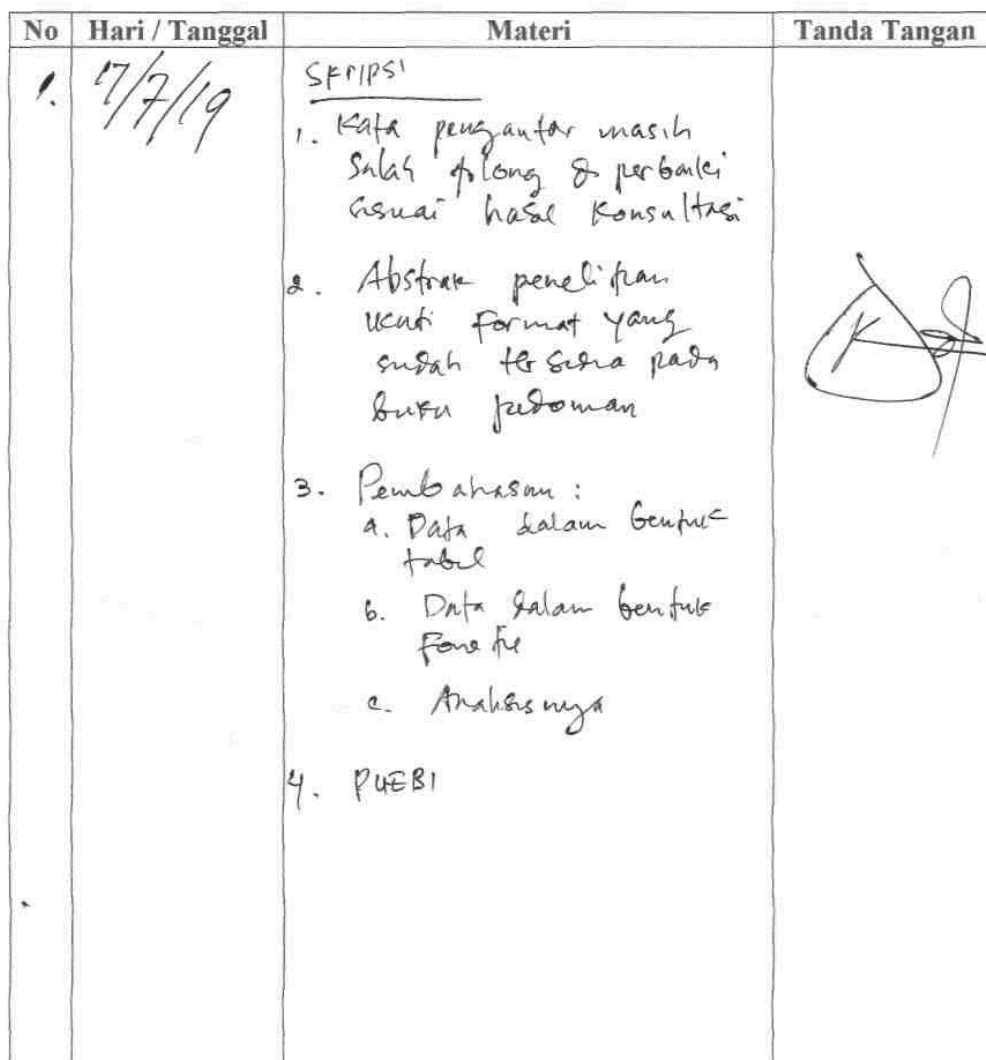 No Hari / Tanggal Materi Tanda Tangan
1. 17/7/19 SKRIPSI
1. Kata pengantar masih
Salah tolong diperbaiki
sesuai hasil konsultasi
2. Abstrak penelitian
ikuti format yang
sudah tersedia pada
buku pedoman
3. Pembahasan :
a. Data dalam bentuk
tabel
b. Data dalam bentuk
Fonetik
c. Analisisnya
4. PUEBI